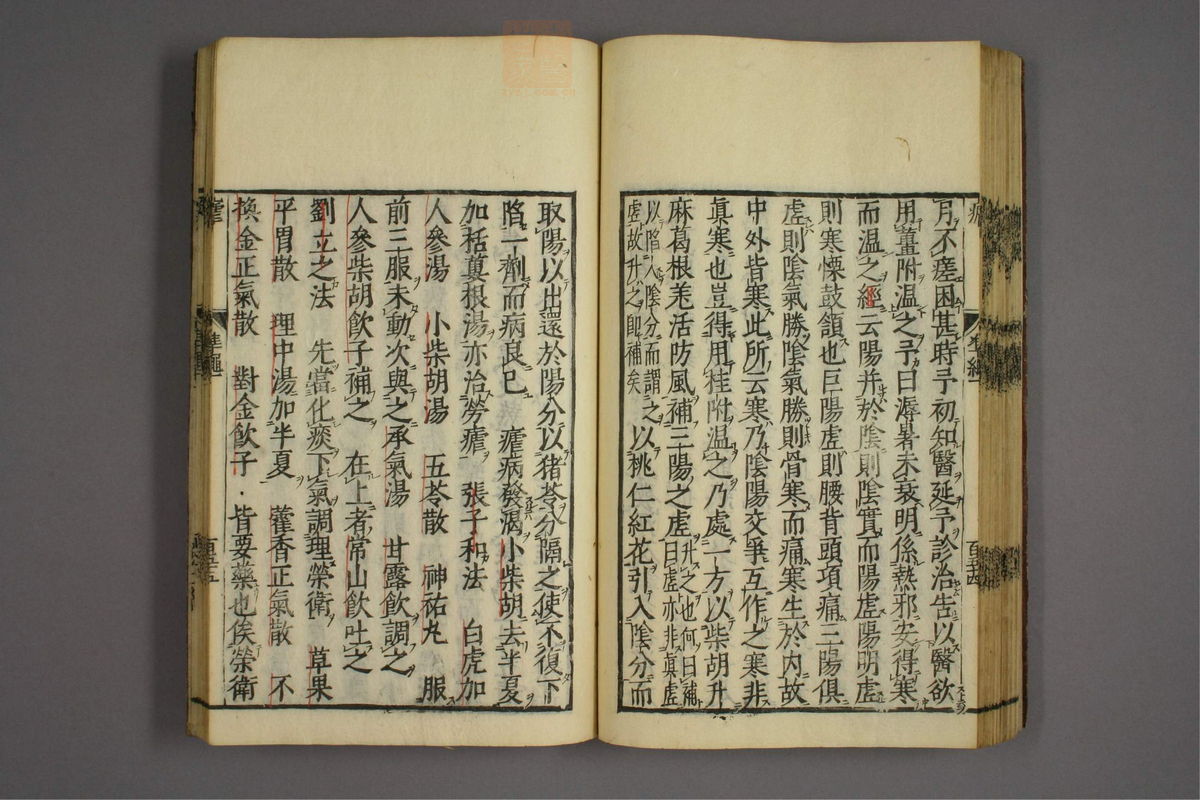 月不瘥困甚時予初知醫延予診治告以醫欲
用薑附温之予曰溽暑未衰明係熱邪安得寒
而温之經云陽并於陰則陰實而陽虚陽明虚
則寒慄鼓頷也巨陽虚則腰背頭項痛三陽俱
虚則陰氣勝陰氣勝則骨寒而痛寒生於内故
中外皆寒此所云寒乃陰陽交爭互作之寒非
眞寒也豈得用桂附温之乃處一方以柴胡升
麻葛根羗活防風補三陽之虚升之也何曰補曰虚亦非眞虚
以陷入陰分而謂之虚故升之即補矣以桃仁紅花引入陰分而
取陽以出還於陽分以猪苓分隔之使不復下
陷一劑而病良已　瘧病發渴小柴胡去半夏
加栝蔞根湯亦治勞瘧　張子和法　白虎加
人參湯　小柴胡湯　五苓散　神祐丸　服
前三服未動次與之承氣湯　甘露飲調之
人參柴胡飲子補之　在上者常山飲吐之
劉立之法　先當化痰下氣調理榮衛　草果
平胃散　理中湯加半夏　藿香正氣散　不
換金正氣散　對金飲子．皆要藥也俟榮衛
瘧
準繩